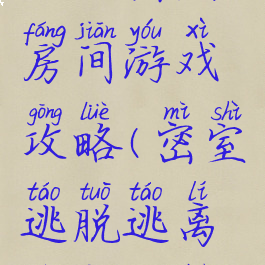 fáng jiān yóu xì
房间游戏
gōng lüè mì shì
攻略(密室
táo tuō táo lí
逃脱逃离